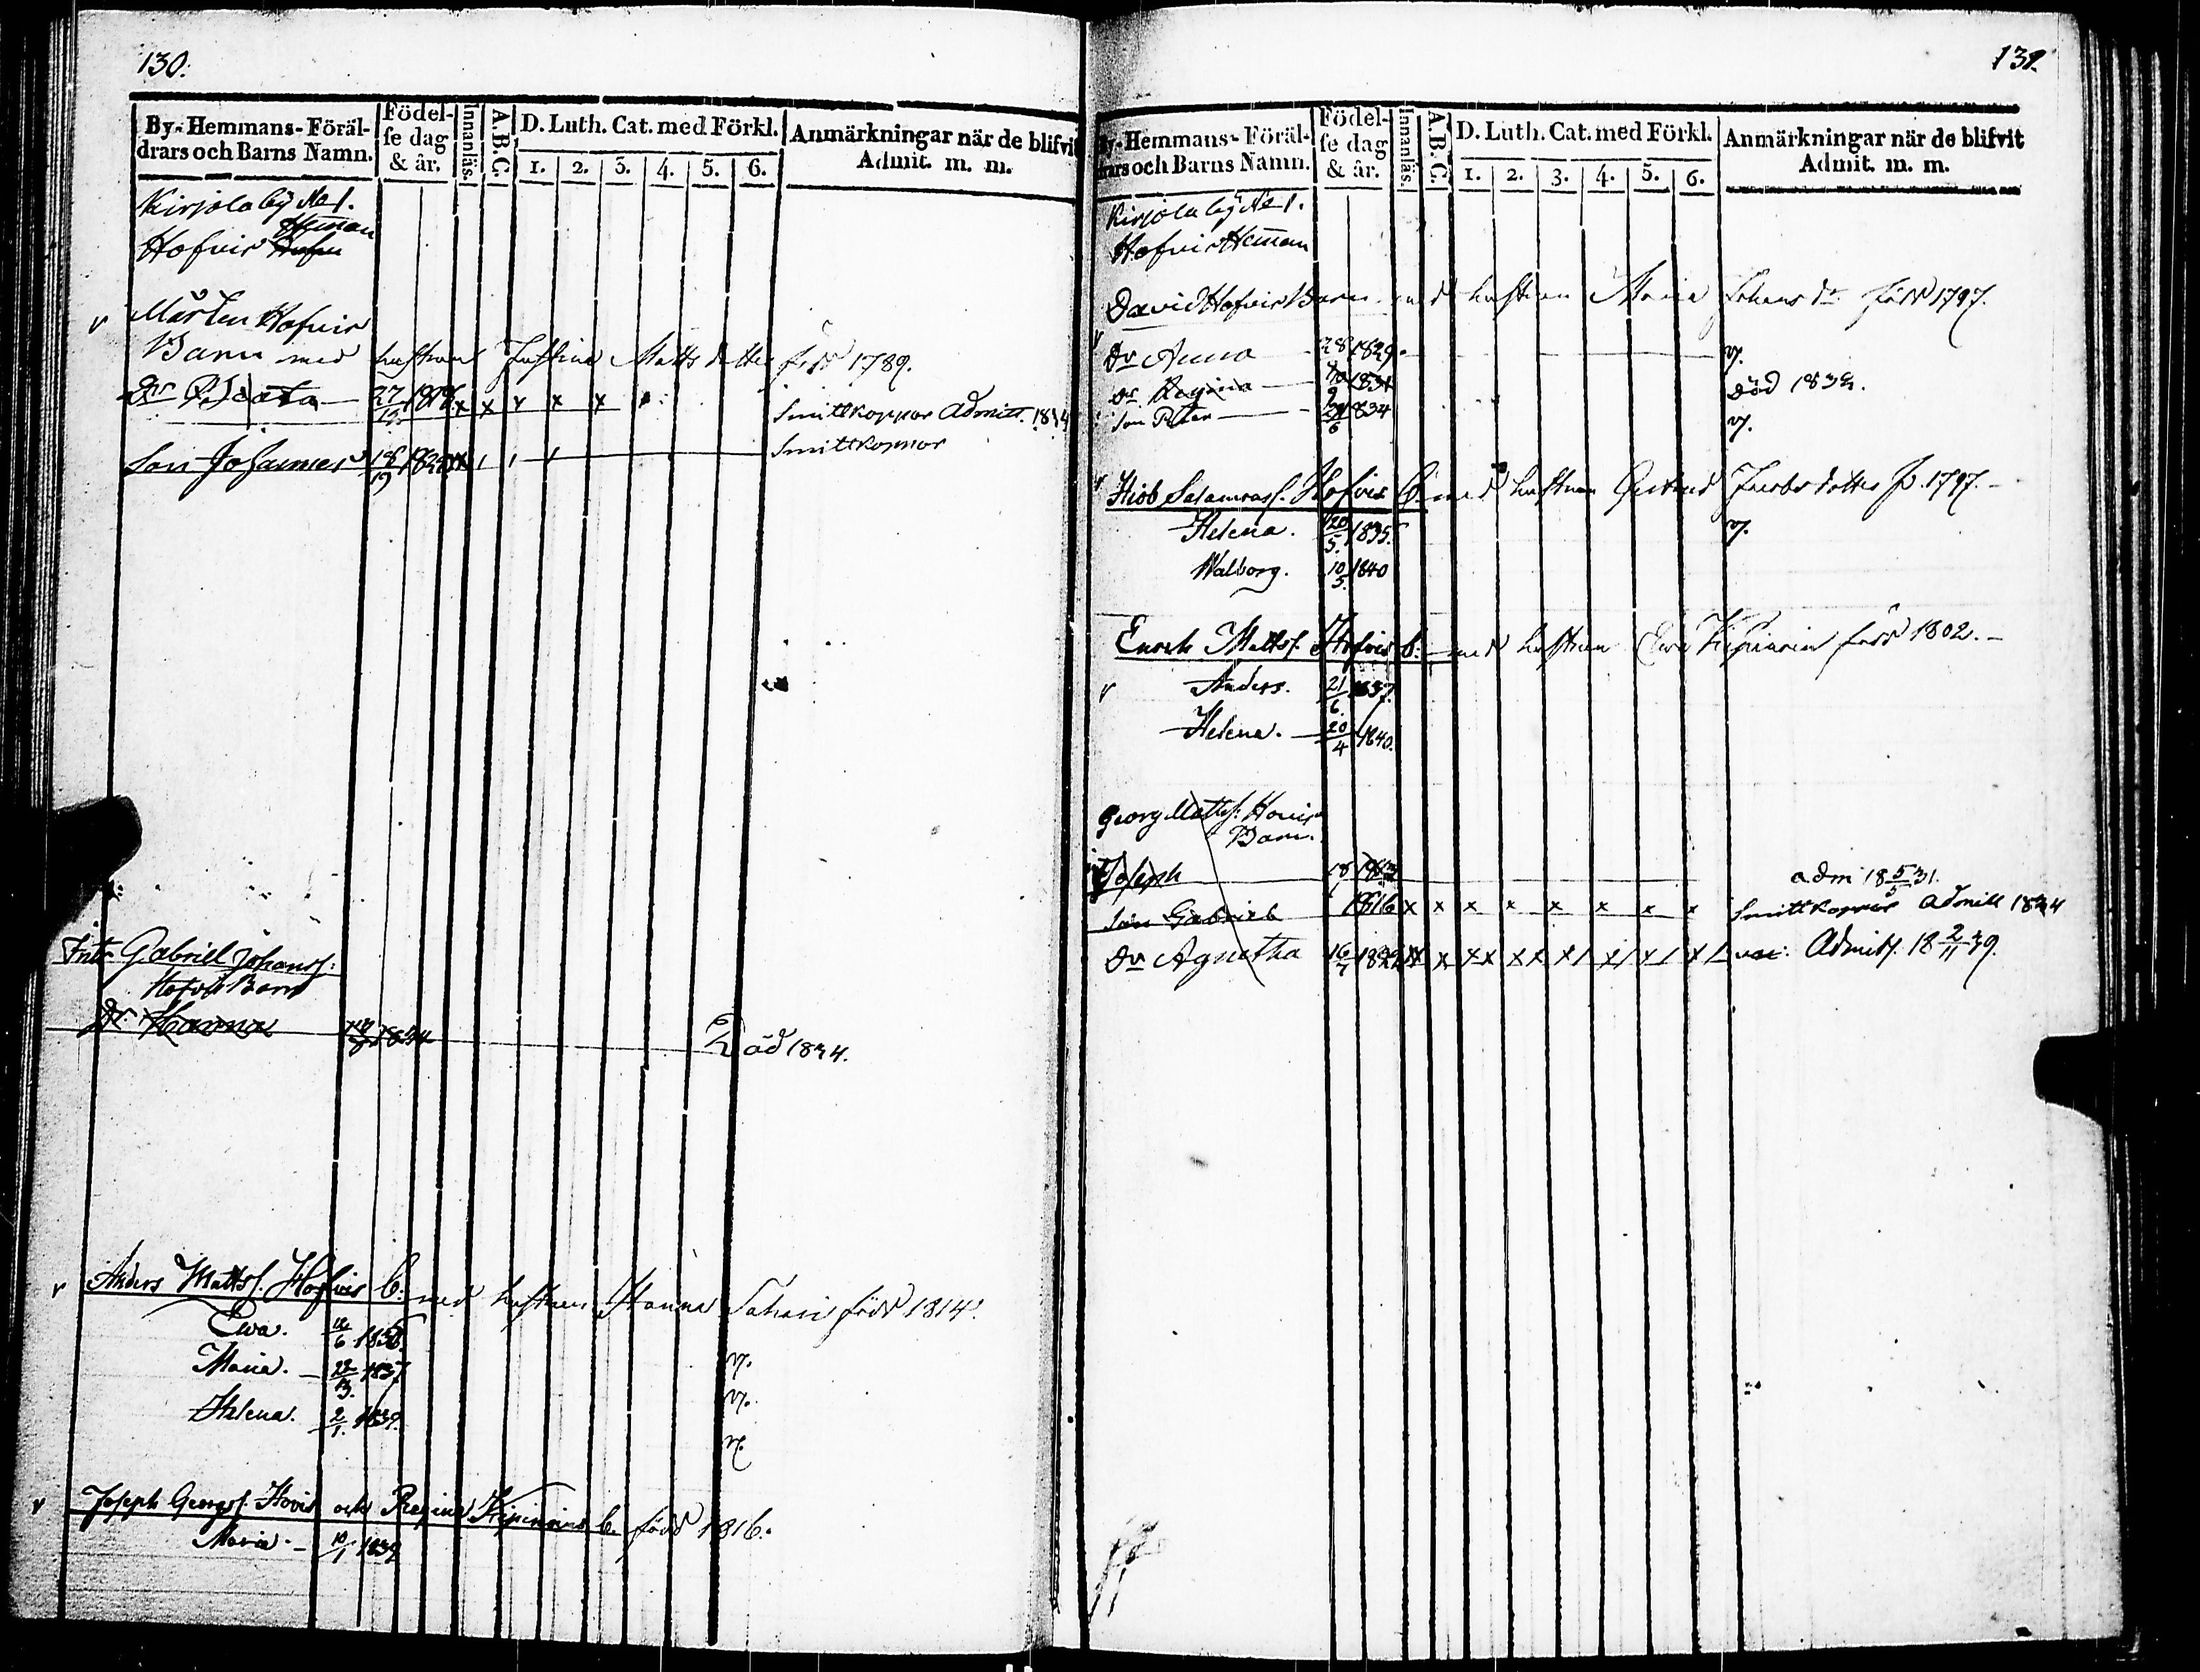 130.
By-Hemmans-Föräldrars och Barns Namn. Födelse dag & år. Innanläs. A.B.C. D. Luth. Cat. med Förkl. 1. 2. 3. 4. 5. 6. Anmärkningar när de blifvit Admit. m. m.
Kirjola by No 1.
Heman
Hofvis
Mårten Hofvis
Barn med hustrun Justina Matts dotter född 1789.
Dr Beata 27/12 x x x x x Smittkoppor Admitt. 1834
Son Johannes 18/19 Smittkoppor
Gabriell Johanss:
Hofvis Barn
Dr. Hanna 1834 Död 1834.
v Anders Mattss. Hofvis b. med hustrun Hanna född 1814.
Ewa. 6 1836 v.
Maria. 1837 v.
Helena. 2/1. 1839. v.
v Joseph Georgss. Hovis och Regina Kipinoinen b. född 1816.
Maria. 10/1 1839
131.
By-Hemmans-Föräldrars och Barns Namn. Födelse dag & år. Innanläs. A.B.C. D. Luth. Cat. med Förkl. 1. 2. 3. 4. 5. 6. Anmärkningar när de blifvit Admit. m. m.
Kirjola by No 1.
Hofvis Heman
David Hofvis Barn med hustrun Maria Johans dr född 1797.
v Dr Anna 28 1829. v.
Dr Regina 1831 Död 1832.
Son Peter 29/6 1834 v.
v Hiob Salamonss. Hofvis b. med hustrun Gertrud Jacobs dotter f. 1797.
Helena. 20/5. 1835. v.
Walborg. 10/5 1840
Enoch Mattss. Hofvis b. med hustrun Ewa Kipinoin född 1802.
v Anders. 21/6. 1837.
Helena. 20/4 1840.
Georg Mattss. Hovis
Barn.
Joseph 18 1813 adm 18 5/5 31.
Son Gabriel 1816 x x x x x x x x Smittkoppor Admitt 1834
Dr Agnetha 16/7 1822 x x xx xx x/ x/ x/ x/ vac: Admitt. 18 2/11 39.